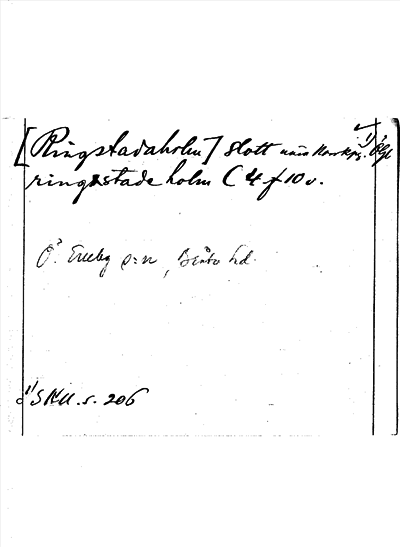 [Ringstadaholm] slott nära Norrkpg. 1) Ögl
ringstade holm C 4 f 10 v.
Ö. Eneby s:n, Bråbo hd.
1) SRU. s. 206